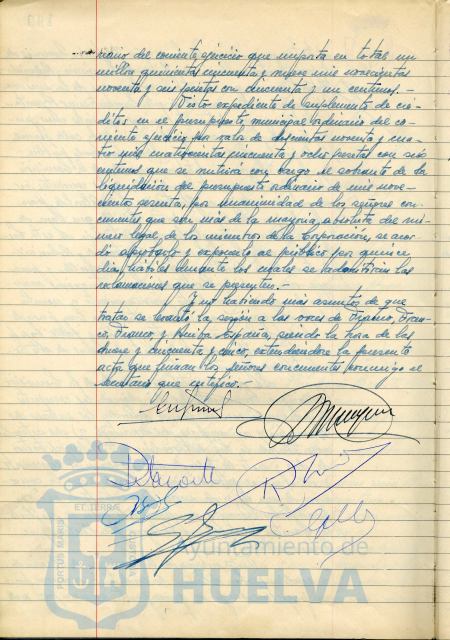 nario del corriente ejercicio que importa en total un
millón quinientas cincuenta y nueve mil novecientas
noventa y seis pesetas con cincuenta y un centimos.-
Visto expediente de suplemento de cré-
ditos en el presupuesto municipal ordinario del co-
rriente ejercicio por valor de doscientas noventa y cua-
tro mil cuatrocientas cincuenta y ocho pesetas con seis
centimos que se nutrirá con cargo al sobrante de la
liquidación del presupuesto ordinario de mil nove-
cientos sesenta, por unanimidad de los señores con-
currentes que son más de la mayoria absoluta del nú-
mero legal de los miembros de la Corporación, se acor-
dó aprobarlo y exponerlo al público por quince
dias hábiles durante los cuales se admitirán las
reclamaciones que se presenten.-
Y no habiendo más asuntos de que
tratar se levantó la sesión a las voces de Franco, Fran-
co, Franco y Arriba España, siendo la hora de las
y cincuenta y cinco, extendiéndose la presente
acta que firman los señores concurrentes conmigo el
Secretario que certifico.-
PORTUS MARIS
ET TERRÆ
CUSTODIA
Ayuntamiento de
HUELVA